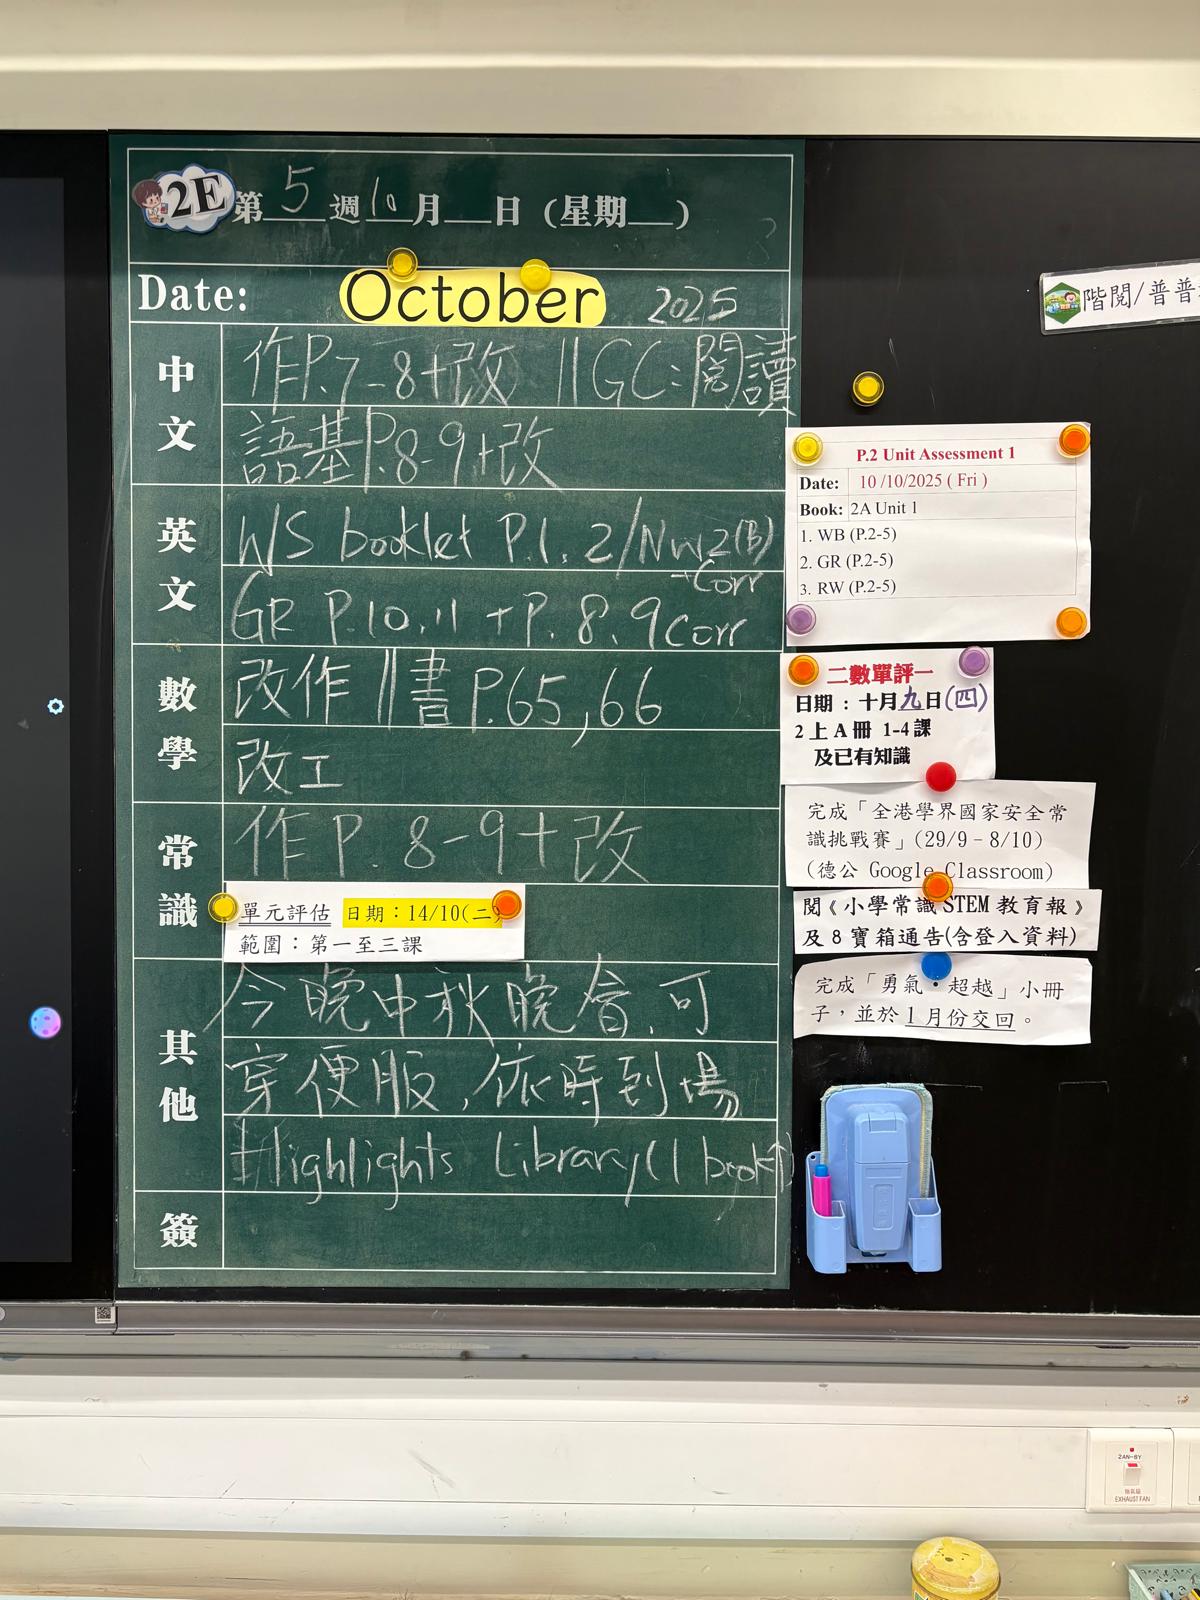 2E 第 5 週 10 月 日 (星期 )
Date: October 2025
中文
作P.7-8+改 || GC:閱讀
語基P.8-9+改
英文
W/S booklet P.1, 2/NW2(B)
+Corr
GR P.10, 11 + P. 8, 9 corr
數學
改作 || 書P.65,66
改工
常識
作P. 8-9+改
單元評估 日期：14/10(二)
範圍：第一至三課
其他
今晚中秋晚會,可
穿便服,依時到場
Highlights Library(1 book↑)
簽
階閱/普普
P.2 Unit Assessment 1
Date: 10 /10/2025 ( Fri )
Book: 2A Unit 1
1. WB (P.2-5)
2. GR (P.2-5)
3. RW (P.2-5)
二數單評一
日期：十月九日(四)
2 上 A 冊 1-4 課
及已有知識
完成「全港學界國家安全常
識挑戰賽」(29/9 – 8/10)
(德公 Google Classroom)
閱《小學常識 STEM 教育報》
及 8 寶箱通告(含登入資料)
完成「勇氣・超越」小冊
子，並於 1 月份交回。
2AN-8Y
抽氣扇
EXHAUST FAN